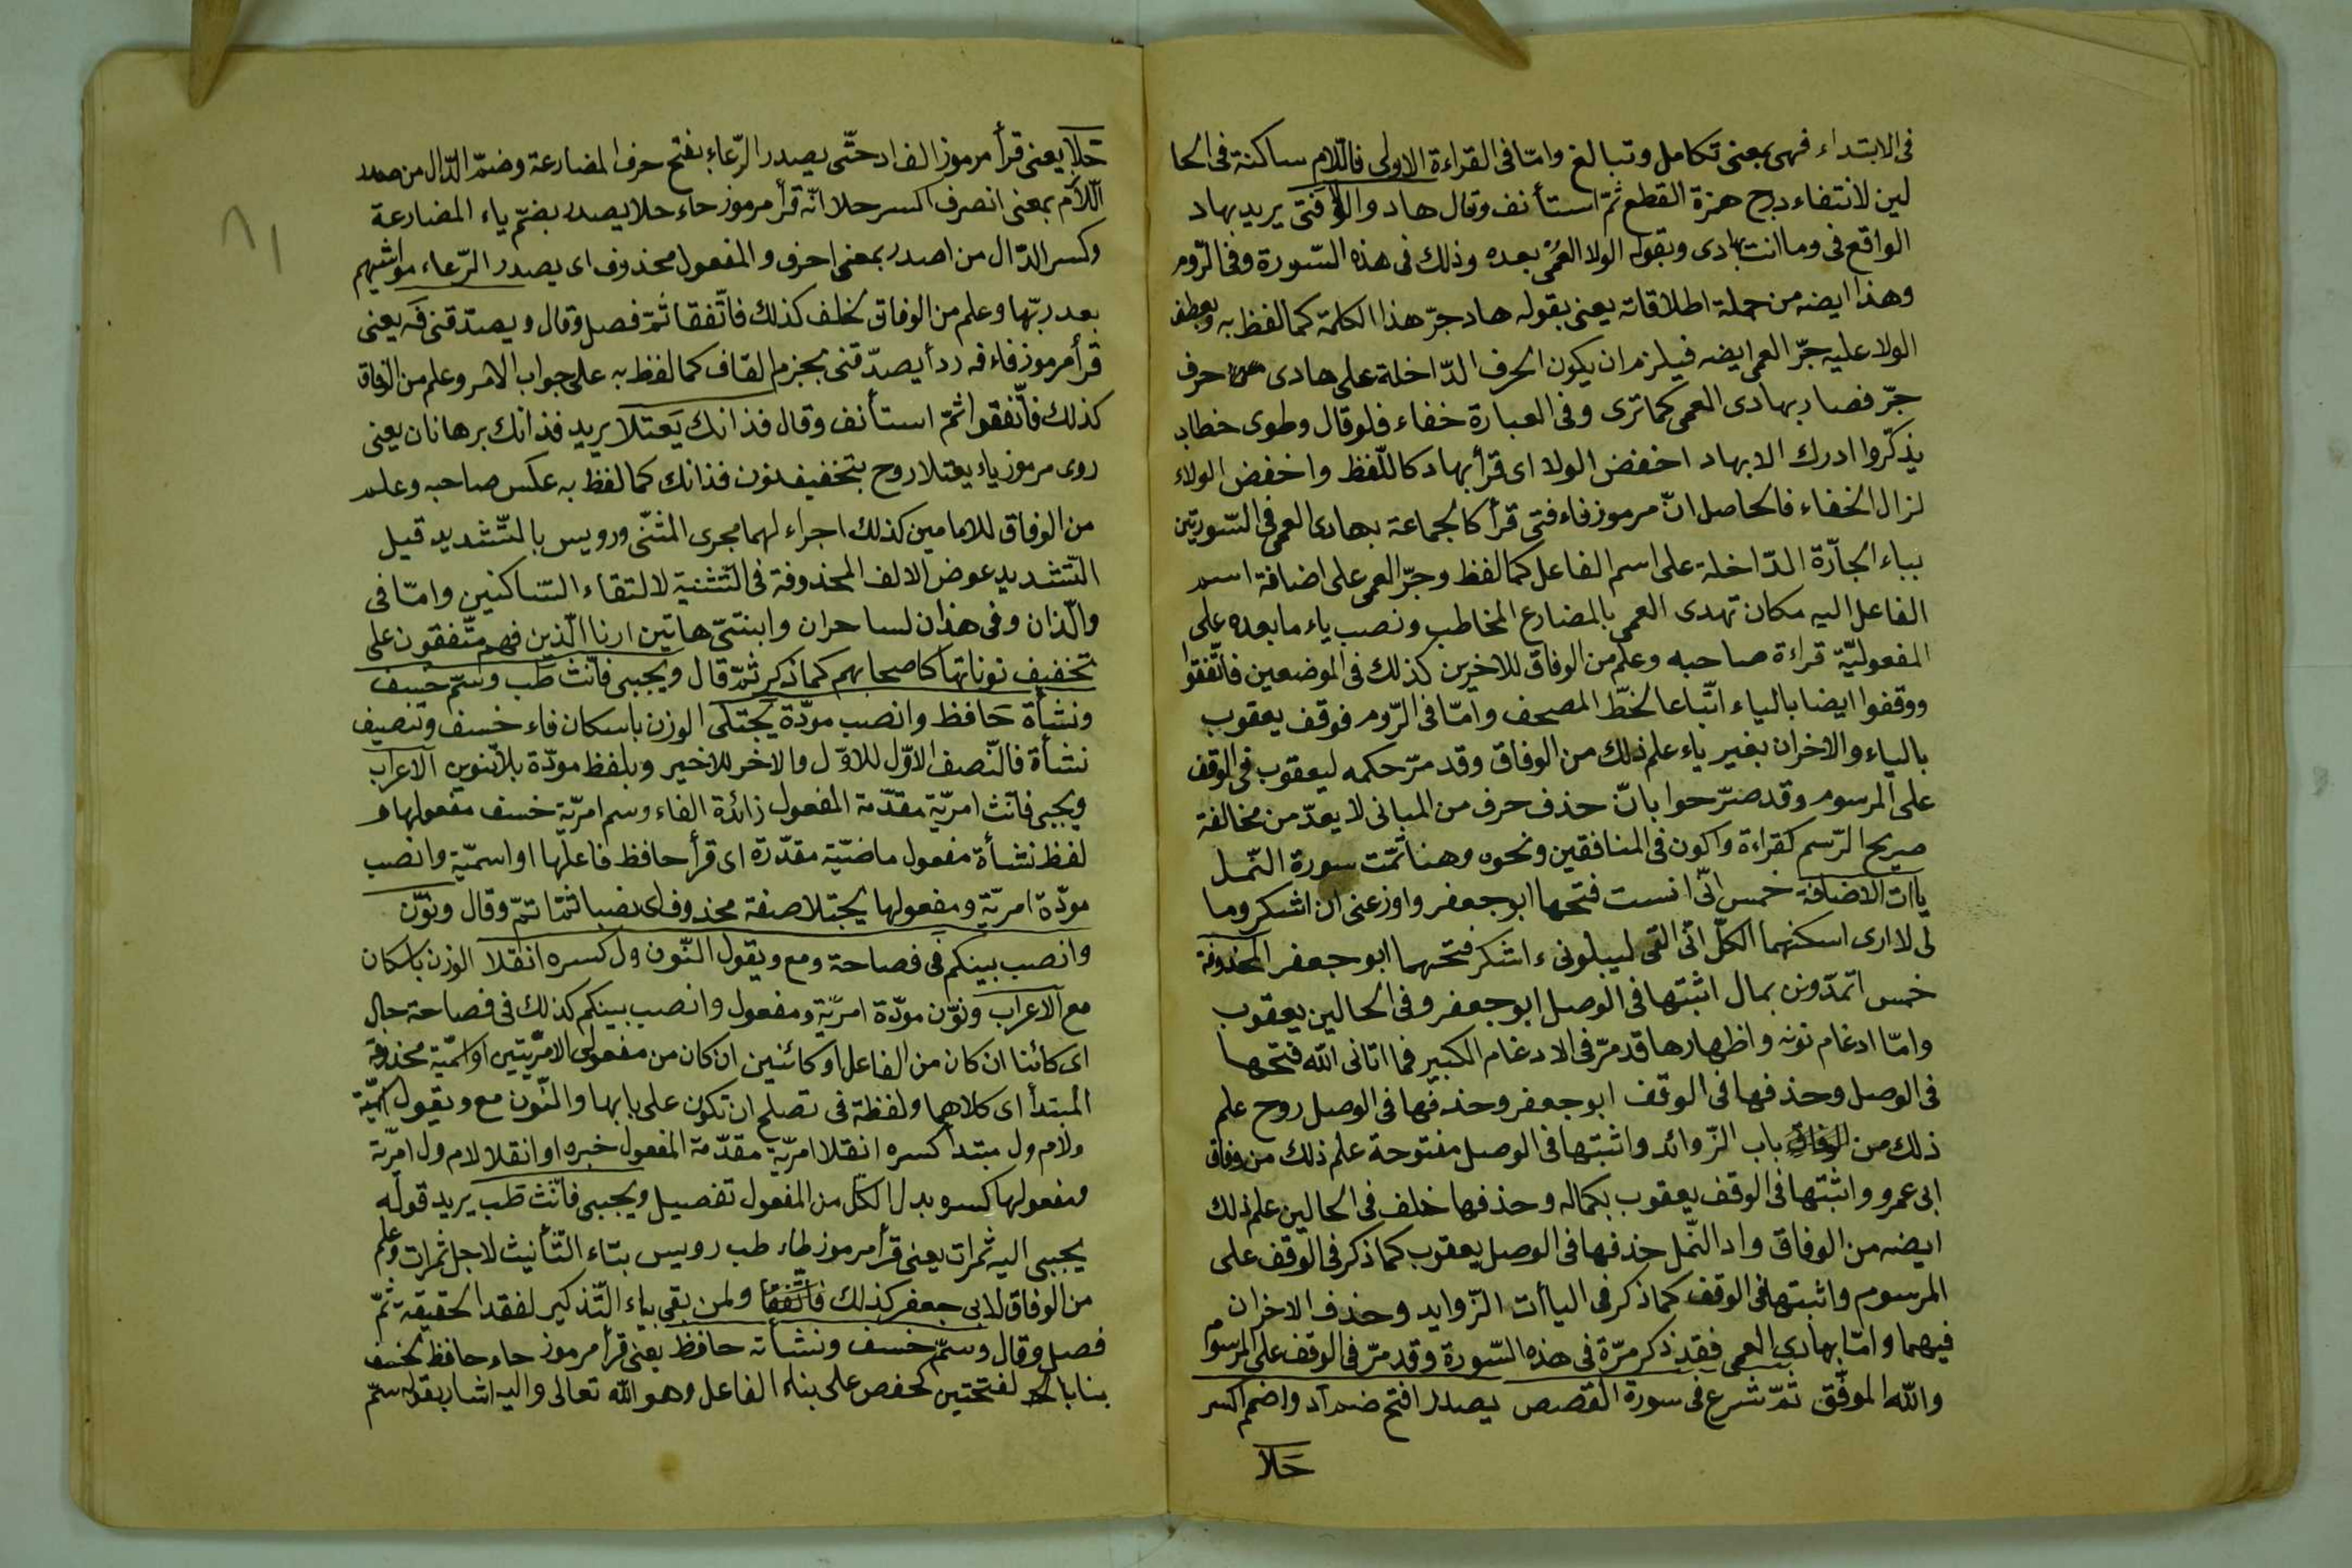 في الابتداء فهي بمعنى تكامل وتبالغ وامّا في القراءة الاولى فاللّام ساكنة في الحا
لين لانتفاء درج همزة القطع ثمّ استأنف وقال هاد والولا فتى يريد بهاد
الواقع في وما انت بهادى وبقوله الولا العمى بعده وذلك في هذه السّورة وفي الرّوم
وهذا ايضه من جملة اطلاقاته يعني بقوله هاد جرّ هذا الكلمة كما لفظ به وبعطف
الولا عليه جرّ العمى ايضه فيلزم ان يكون الحرف الدّاخلة على هادى حرف
جرّ فصار بهادى العمى كما ترى وفي العبارة خفاء فلو قال وطوى خطاب
يذكّروا ادرك الا بهاد اخفض الولا اى قرأ بهاد كاللّفظ واخفض الولاء
لزال الخفاء فالحاصل انّ مرموز فاء فتى قرأ كالجماعة بهادى العمى في السّورتين
بباء الجارّة الدّاخلة على اسم الفاعل كما لفظ وجرّ العمى على اضافة اسم
الفاعل اليه مكان تهدى العمى بالمضارع المخاطب ونصب ياء ما بعده على
المفعوليّة قراءة صاحبه وعلم من الوفاق للاخرين كذلك في الموضعين فاتّفقوا
ووقفوا ايضا بالياء اتّباعا لخطّ المصحف وامّا في الرّوم فوقف يعقوب
بالياء والاخران بغير ياء علم ذلك من الوفاق وقد مرّ حكمه ليعقوب في الوقف
على المرسوم وقد صرّحوا بانّ حذف حرف من المباني لا يعدّ من مخالفة
صريح الرّسم كقراءة واكون في المنافقين ونحوه وهنا تمّت سورة النّمل
ياات الاضافة خمس انّى انست فتحها ابو جعفر واوزعنى ان اشكر وما
لى لا ارى اسكنهما الكلّ انّى القى ليبلونى ء اشكر فتحهما ابو جعفر المحذوفة
خمس اتمدّونن بمال اثبتها في الوصل ابو جعفر وفي الحالين يعقوب
وامّا ادغام نونه واظهارها قد مرّ في الادغام الكبير فما اتانى الله فتحها
في الوصل وحذفها في الوقف ابو جعفر وحذفها في الوصل روح علم
ذلك من الوفاق باب الزّوائد واثبتها في الوصل مفتوحة علم ذلك من وفاق
ابى عمرو واثبتها في الوقف يعقوب بكماله وحذفها خلف في الحالين علم ذلك
ايضه من الوفاق واد النّمل حذفها في الوصل يعقوب كما ذكر في الوقف على
المرسوم واثبتها في الوقف كما ذكر في الياأت الزّوايد وحذف الاخران
فيهما وامّا بهادى العمى فقد ذكر مرّة في هذه السّورة وقد مرّ في الوقف على المرسوم
والله الموفّق ثمّ شرع في سورة القصص يصدر افتح ضم اد واضمم اكسر
حلا
حلا يعني قرأ مرموز الف اد حتّى يصدر الرّعاء بفتح حرف المضارعة وضمّ الدّال من صدر
اللّازم بمعنى انصرف اكسر حلا انّه قرأ مرموز حاء حلا يصدر بضمّ ياء المضارعة
وكسر الدّال من اصدر بمعنى احرف والمفعول محذوف اى يصدر الرّعاء مواشيهم
بعد ربّها وعلم من الوفاق لخلف كذلك فاتّفقا ثمّ فصل وقال ويصدّقنى فه يعني
قرأ مرموز فاء فه ردأ يصدّقنى بجزم القاف كما لفظ به على جواب الامر وعلم من الوفاق
كذلك فاتّفقوا ثمّ استأنف وقال فذانك يعتلا يريد فذانك برهانان يعني
روى مرموز ياء يعتلا روح بتخفيف نون فذانك كما لفظ به عكس صاحبه وعلم
من الوفاق للامامين كذلك اجراء لهما مجرى المثنّى ورويس بالتّشديد قيل
التّشديد عوض الالف المحذوفة في التّثنية لالتقاء السّاكنين وامّا في
والّذان وفي هذان لساحران وابنتىّ هاتين ارنا الّذين فهم متّفقون على
تخفيف نوناتها كاصحابهم كما ذكر ثمّ قال ويجبى فانّث طب وسمّ خسف
ونشأة حافظ وانصب مودّة يجتلى الوزن باسكان فاء خسف وتنصيف
نشأة فالنّصف الاوّل للاوّل والاخر للاخير وبلفظ مودّة بلا تنوين الاعراب
ويجبى فانّث امريّة مقدّمة المفعول زائدة الفاء وسم امريّة خسف مفعولها و
لفظ نشأة مفعول ماضيّة مقدّرة اى قرأ حافظ فاعلها او اسميّة وانصب
مودّة امريّة ومفعولها يجتلا صفة محذوف اى نصبا ثمّ وقال ونوّن
وانصب بينكم في فصاحة ومع ويقول النّون ول كسره انقلا الوزن باسكان
مع الاعراب ونوّن مودّة امريّة ومفعول وانصب بينكم كذلك في فصاحة حال
اى كائنا ان كان من الفاعل او كائنين ان كان من مفعولى الامريّتين او اسميّة محذوفة
المبتدأ اى كلاهما ولفظة في تصلح ان تكون على بابها والنّون مع ويقول اسميّة
ولام ول مبتدا كسره انقلا امريّة مقدّمة المفعول خبره او انقلا لام ول امريّة
ومفعولها كسره بدل الكلّ من المفعول تفصيل ويجبى فانّث طب يريد قوله
يجبى اليه ثمرات يعني قرأ مرموز طاء طب رويس بتاء التّأنيث لاجل ثمرات وعلم
من الوفاق لابى جعفر كذلك فاتّفقا ولمن بقى بياء التّذكير لفقد الحقيقة ثمّ
فصل وقال وسمّ خسف ونشأته حافظ يعني قرأ مرموز حاء حافظ لخسف
بنا بفتحتين كحفص على بناء الفاعل وهو الله تعالى واليه اشار بقوله سمّ